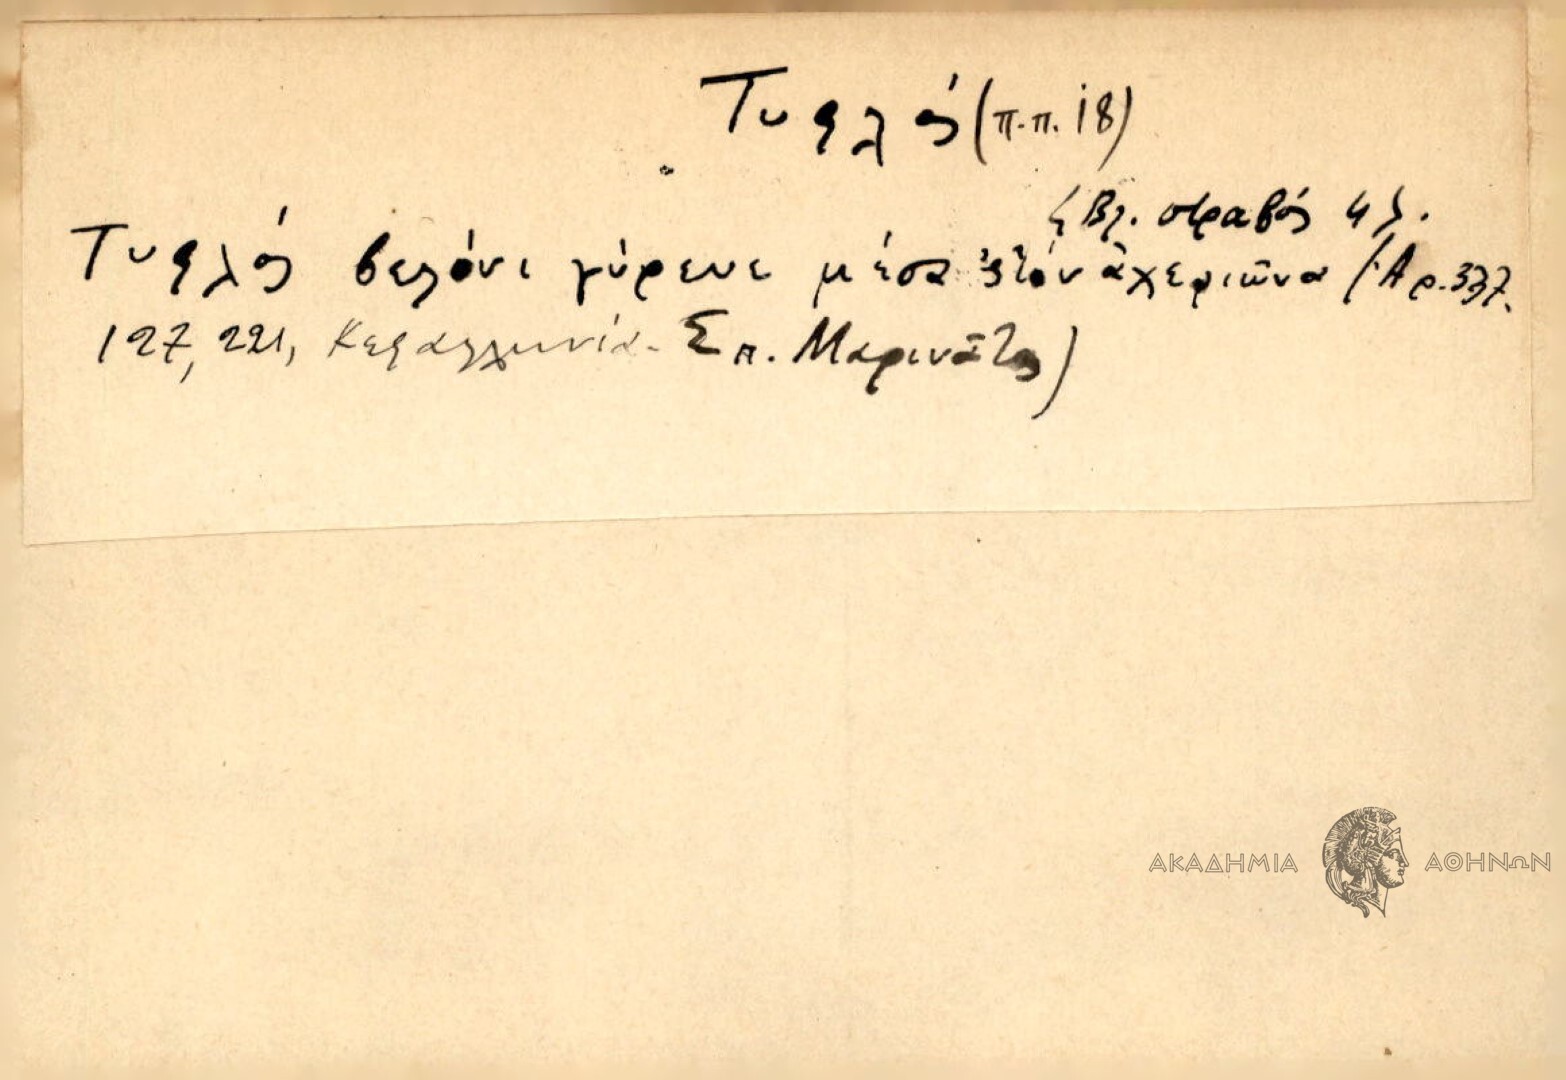 Τυφλός (π.π. 18)
{Βλ. στραβός 4}.
Τυφλός βελόνι γύρευε μέσα 'ς τον ἀχεριῶνα (Ἀρ. 337.
127, 221, Κεφαλληνία. Σπ. Μαρινᾶτος)
ΑΚΑΔΗΜΙΑ ΑΘΗΝΩΝ